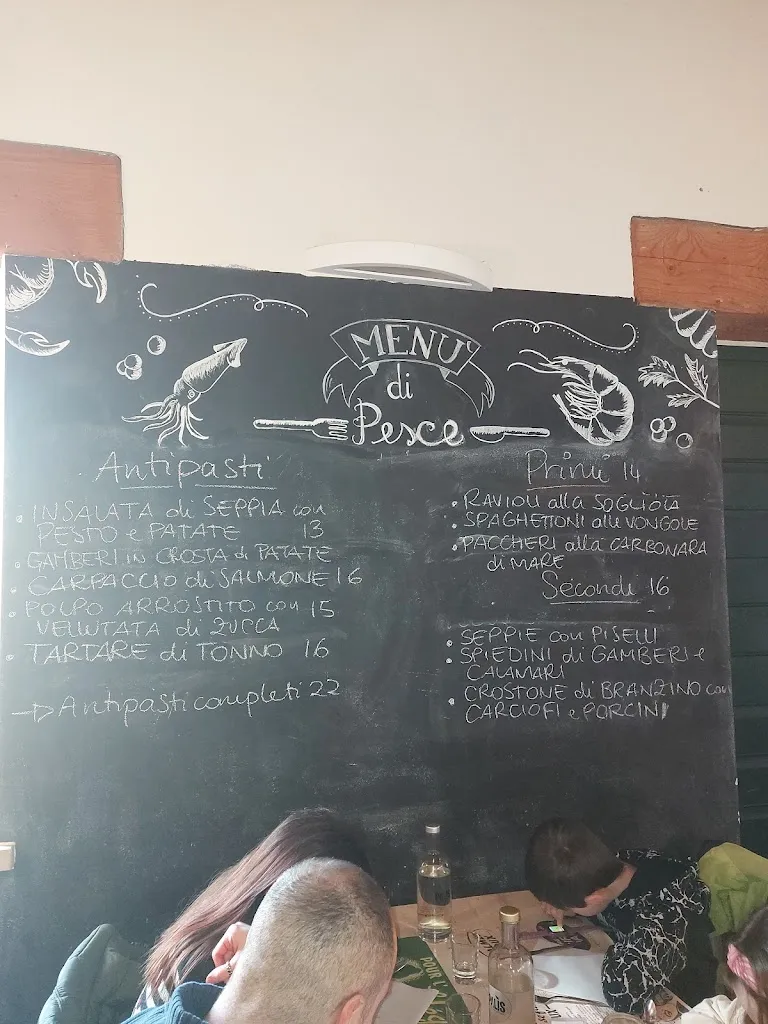 MENU'
di
Pesce
Antipasti
• INSALATA di SEPPIA con
PESTO e PATATE 13
• GAMBERI in CROSTA di PATATE
• CARPACCIO di SALMONE 16
• POLPO ARROSTITO con 15
VELLUTATA di ZUCCA
• TARTARE di TONNO 16
→ Antipasti completi 22
Primi 14
• RAVIOLI alla SOGLIOLA
• SPAGHETTONI alle VONGOLE
• PACCHERI alla CARBONARA
di MARE
Secondi 16
• SEPPIE con PISELLI
• SPIEDINI di GAMBERI e
CALAMARI
• CROSTONE di BRANZINO con
CARCIOFI e PORCINI
POUR L'